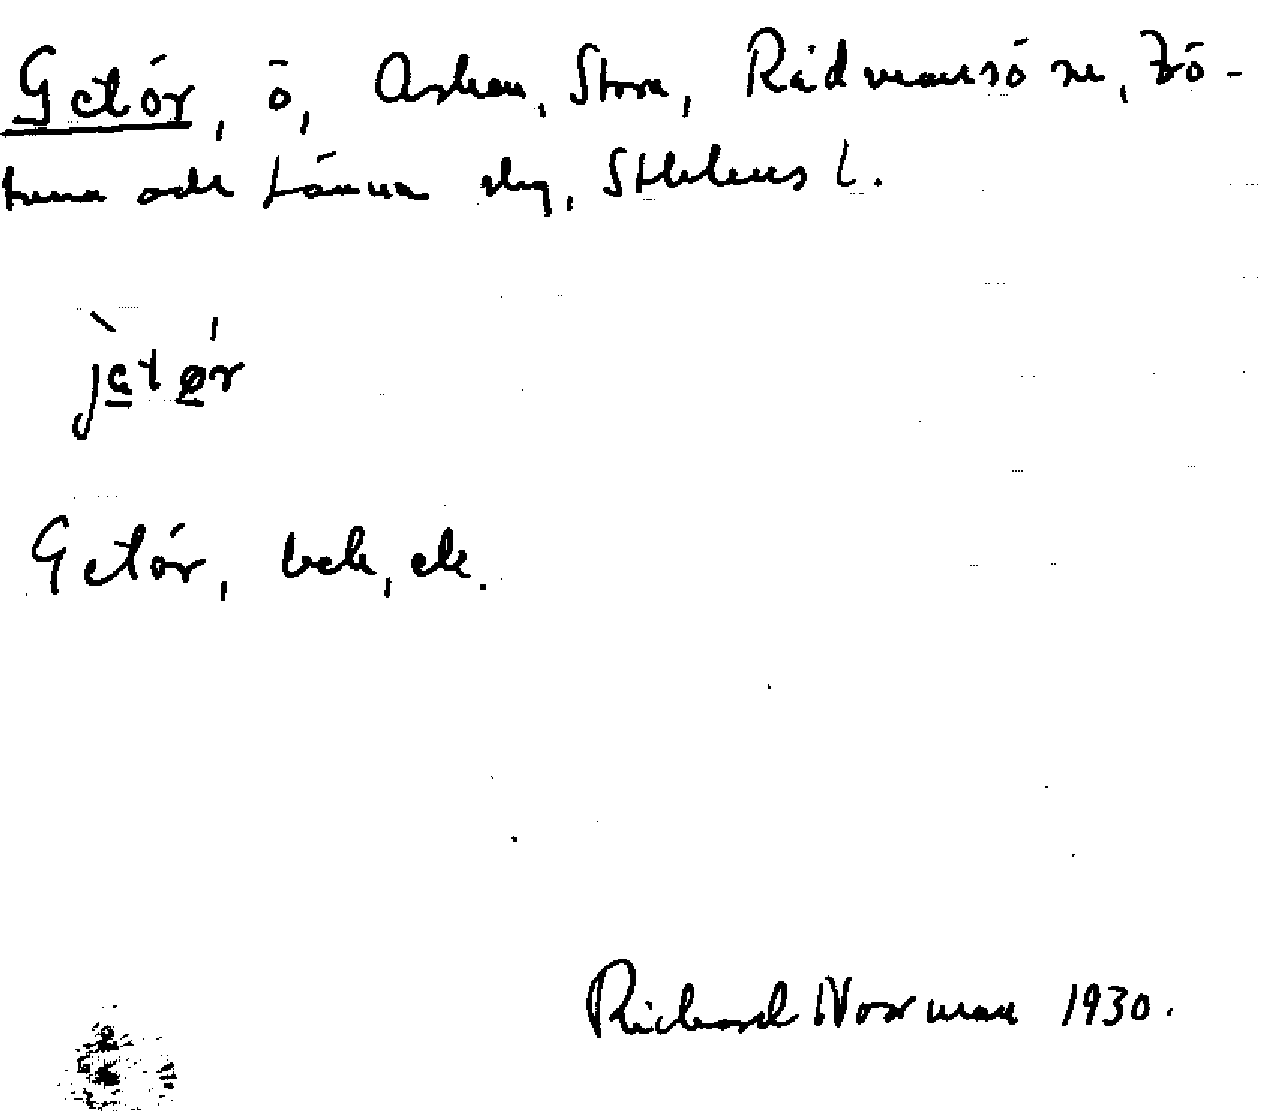 Getör, ö, Askan, Stora, Rådmansö sn, Frö-
tuna och Länna slg, Sthlms l.
jetør
Getör, bek, ek.
Richard Norman 1930.